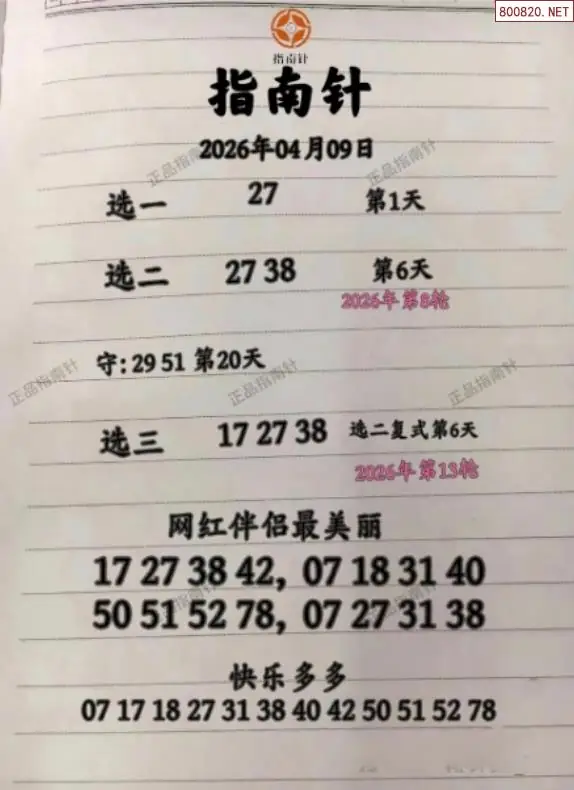 800820.NET
指南针
指南针
2026年04月09日
正品指南针 正品指南针
选一 27 第1天
选二 27 38 第6天
2026年 第8轮
守: 29 51 第20天
正品指南针 正品指南针 正品指南针
选三 17 27 38 选二复式第6天
2026年 第13轮
网红伴侣最美丽
17 27 38 42, 07 18 31 40
50 51 52 78, 07 27 31 38
正品指南针 正品指南针
快乐多多
07 17 18 27 31 38 40 42 50 51 52 78